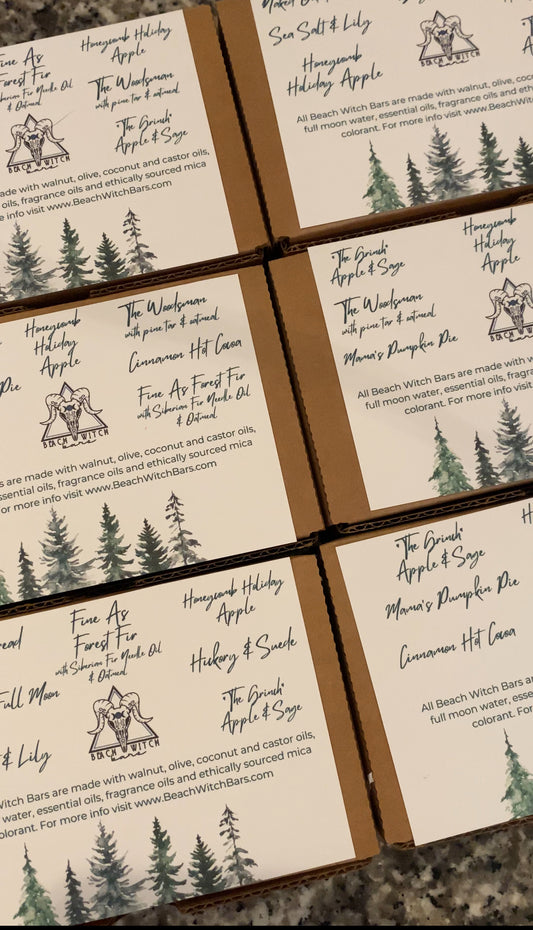 Fine As
Forest Fir
Siberian Fir Needle Oil
& Oatmeal
Honeycomb Holiday
Apple
The Woodsman
with pine tar & oatmeal
"The Grinch"
Apple & Sage
BEACH WITCH
Bars
made with walnut, olive, coconut and castor oils,
oils, fragrance oils and ethically sourced mica
info visit www.BeachWitchBars.com
Sea Salt & Lily
Honeycomb
Holiday Apple
BEACH WITCH
Bars
All Beach Witch Bars are made with walnut, olive, coco
full moon water, essential oils, fragrance oils and eth
colorant. For more info visit www.BeachWitch
Honeycomb
Holiday
Apple
Pie
The Woodsman
with pine tar & oatmeal
Cinnamon Hot Cocoa
Fine As Forest Fir
with Siberian Fir Needle Oil
& Oatmeal
BEACH WITCH
Bars
are made with walnut, olive, coconut and castor oils,
essential oils, fragrance oils and ethically sourced mica
or more info visit www.BeachWitchBars.com
"The Grinch"
Apple & Sage
Honeycomb
Holiday
Apple
The Woodsman
with pine tar & oatmeal
Mama's Pumpkin Pie
BEACH
All Beach Witch Bars are made with w
full moon water, essential oils, fragranc
colorant. For more info visit
read
Fine As
Forest Fir
with Siberian Fir Needle Oil
& Oatmeal
Honeycomb Holiday
Apple
Full Moon
Hickory & Suede
& Lily
"The Grinch"
Apple & Sage
BEACH WITCH
Bars
Witch Bars are made with walnut, olive, coconut and castor oils,
water, essential oils, fragrance oils and ethically sourced mica
colorant. For more info visit www.BeachWitchBars.com
"The Grinch"
Apple & Sage
Mama's Pumpkin Pie
Cinnamon Hot Cocoa
All Beach Witch Bars are
full moon water, essen
colorant. For